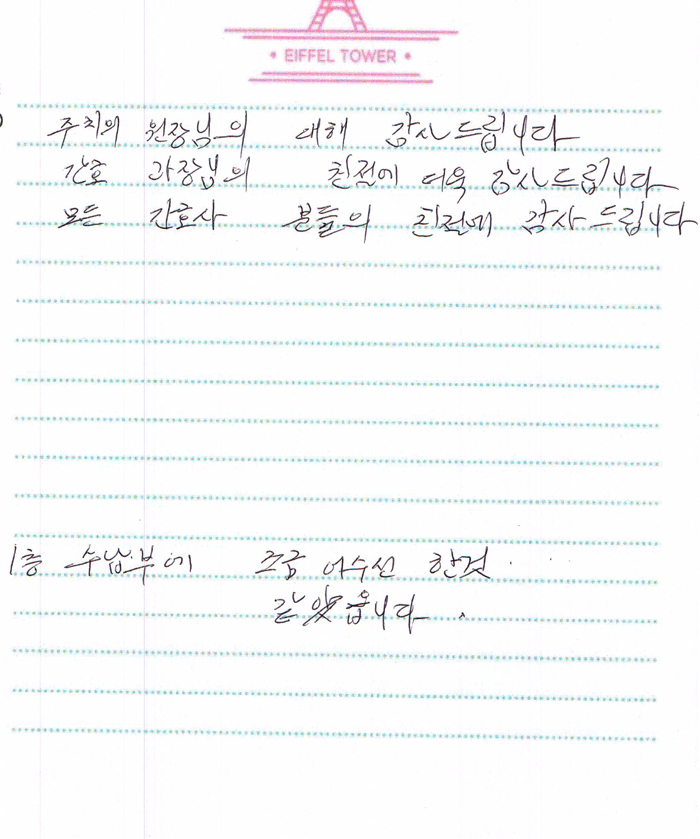 • EIFFEL TOWER •
주치의 원장님의 대해 감사드립니다
간호 과장님의 친절에 더욱 감사드립니다
모든 간호사 분들의 친절에 감사드립니다
1층 수납부에 조금 어수선 한것
같았읍니다.